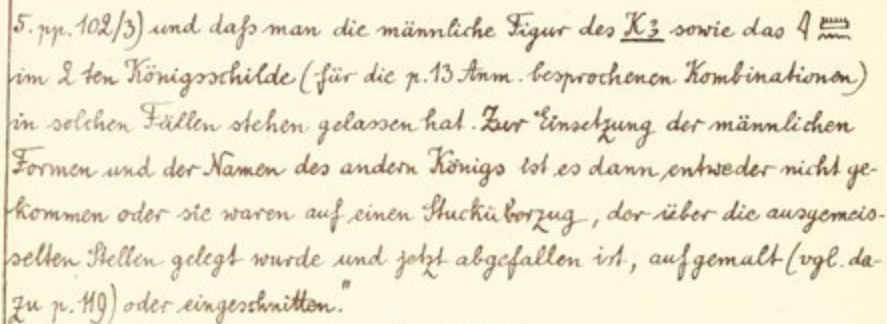 5. pp. 102/3) und daſs man die männliche Figur des K3 sowie das 𓇋𓏠𓈖
im 2 ten Königsschilde (für die p. 13 Anm. besprochenen Kombinationen)
in solchen Fällen stehen gelassen hat. Zur Einsetzung der männlichen
Formen und der Namen des andern Königs ist es dann entweder nicht ge-
kommen oder sie waren auf einen Stucküberzug, der über die ausgemeis-
selten Stellen gelegt wurde und jetzt abgefallen ist, aufgemalt (vgl. da-
zu p. 119) oder eingeschnitten."